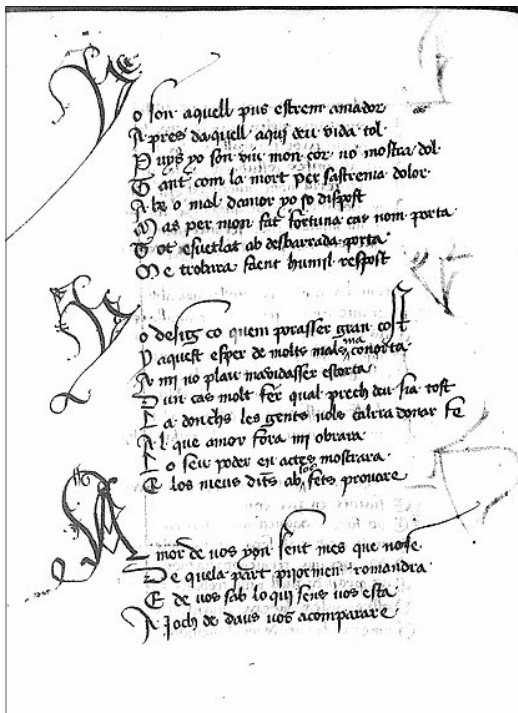 Yo son aquell pus estrem amador
Apres daquell aqui deu vida tol
Puys yo son viu mon cor no mostra dol
Tant com la mort per sastremia dolor
A be o mal damor yo so dispost
Mas per mon fat fortuna cas nom porta
Tot esuetlat ab desbarrada porta
Me trobara faent humil respost
Yo desig ço quem porasser gran cost
Y aquest esper de molts mals ma conorta
A mi no plau ma vida sser estorta
Dun cas molt fer qual prech deu sia tost
La donchs les gents nols calrra donar fe
Al que amor fora mi obrara
Lo seu poder en actes mostrara
E los meus dits ab los fets provare
Amor de vos yon sent mes que nose
De quela part pijormen romandra
E de vos sab lo qui sens vos esta
A joch de daus vos acomparare